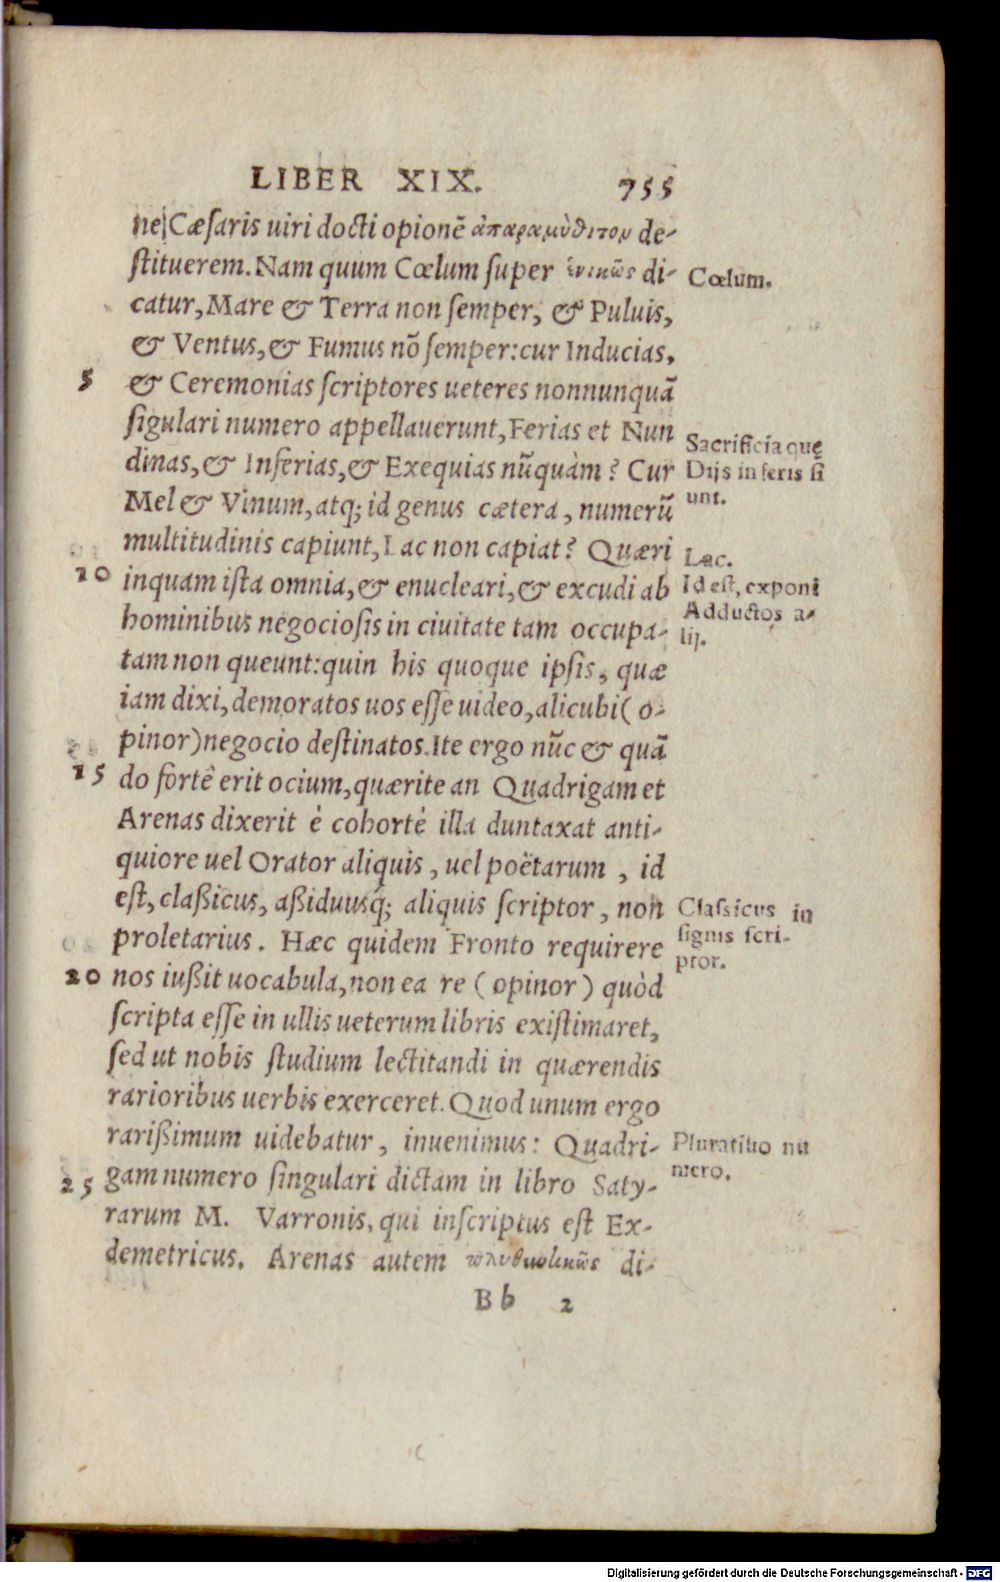 LIBER XIX. 755
ne Cæſaris uiri docti opionẽ ἀπαραμύθιτον de-
ſtituerem. Nam quum Cœlum ſuper ἑνικῶς di-
catur, Mare & Terra non ſemper, & Puluis,
& Ventus, & Fumus nõ ſemper: cur Inducias,
5 & Ceremonias ſcriptores ueteres nonnunquã
ſigulari numero appellauerunt, Ferias et Nun
dinas, & Inferias, & Exequias nũquàm? Cur
Mel & Vinum, atq; id genus cætera, numerũ
multitudinis capiunt, Lac non capiat? Quæri
10 inquam iſta omnia, & enucleari, & excudi ab
hominibus negocioſis in ciuitate tam occupa-
tam non queunt: quin his quoque ipſis, quæ
iam dixi, demoratos uos eſſe uideo, alicubi (o-
pinor) negocio deſtinatos. Ite ergo nũc & quã
15 do fortè erit ocium, quærite an Quadrigam et
Arenas dixerit è cohortė illa duntaxat anti-
quiore uel Orator aliquis, uel poëtarum, id
eſt, claßicus, aßiduusq́; aliquis ſcriptor, non
proletarius. Hæc quidem Fronto requirere
20 nos iußit uocabula, non ea re (opinor) quòd
ſcripta eſſe in ullis ueterum libris exiſtimaret,
ſed ut nobis ſtudium lectitandi in quærendis
rarioribus uerbis exerceret. Quod unum ergo
rarißimum uidebatur, inuenimus: Quadri-
25 gam numero ſingulari dictam in libro Saty-
rarum M. Varronis, qui inſcriptus eſt Ex-
demetricus. Arenas autem di-
Bb 2
Cœlum.
Sacrificia quę
Dijs inferis fi
unt.
Lac.
Id eſt, exponi
Adductos a-
lij.
Claſsicus in
ſignis ſcri-
ptor.
Pluratiuo nu
mero.
Digitalisierung gefördert durch die Deutsche Forschungsgemeinschaft - DFG